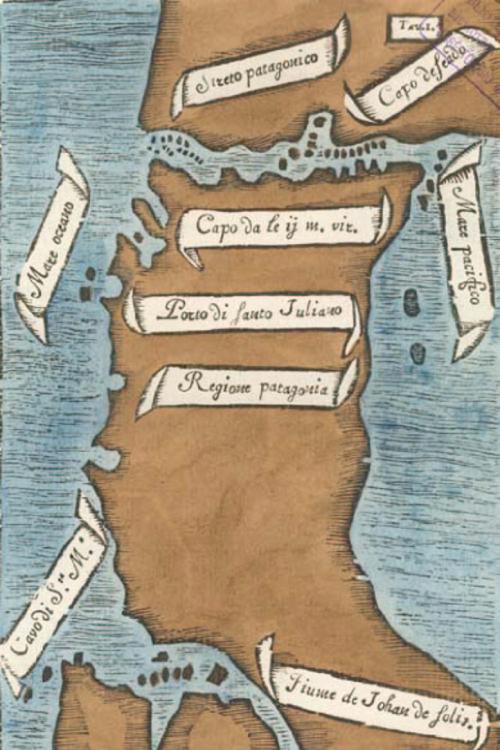 Streto patagonico
Capo deseado
Capo da le ij m. vir.
Mare oceano
Mare pacifico
Porto di santo Juliano
Regione patagonia
Cavo di S.ta M.a
Fiume de Johan de solis.